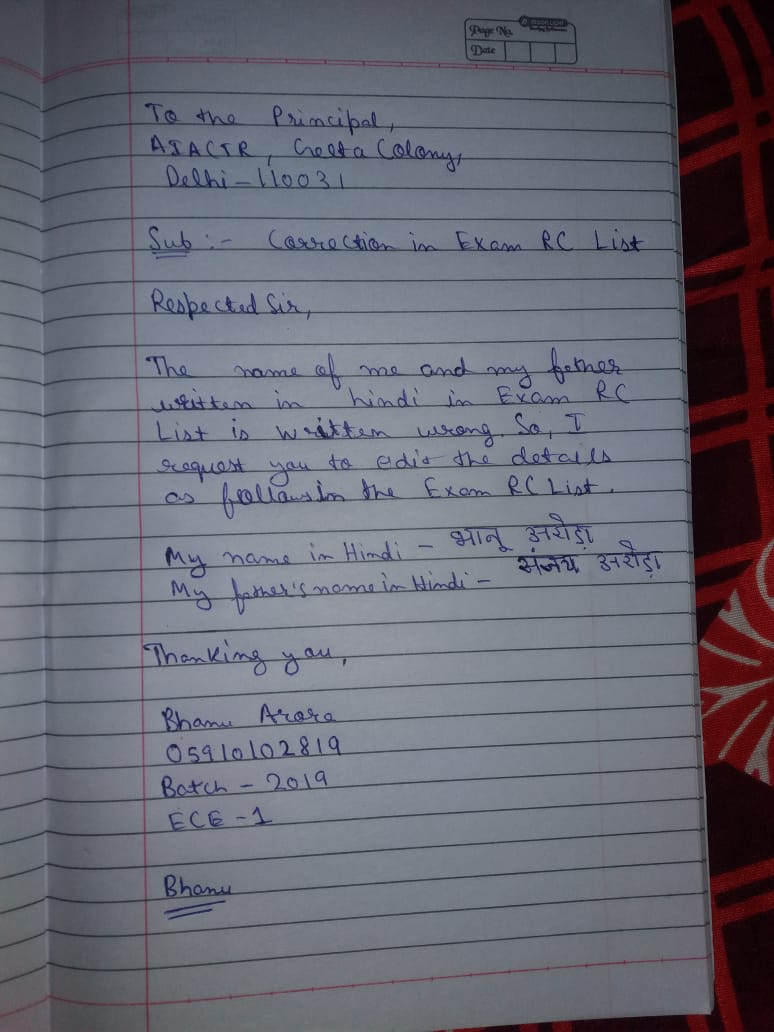 Page No.
Date
To the Principal,
AIACTR, Geeta Colony,
Delhi - 110031
Sub :- Correction in Exam RC List
Respected Sir,
The name of me and my father
written in hindi in Exam RC
List is written wrong. So, I
request you to edit the details
as follows in the Exam RC List.
My name in Hindi - भानू अरोड़ा
My father's name in Hindi - संजय अरोड़ा
Thanking you,
Bhanu Arora
05910102819
Batch - 2019
ECE - 1
Bhanu